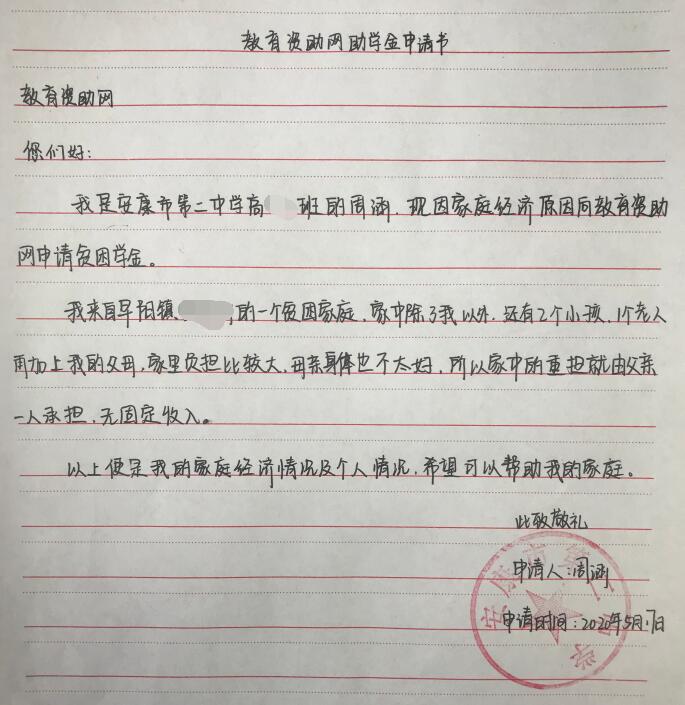 教育资助网助学金申请书
教育资助网
你们好:
我是安康市第二中学高 班的周涵,现因家庭经济原因向教育资助
网申请贫困学金。
我来自早阳镇 的一个贫困家庭,家中除了我以外,还有2个小孩,1个老人
再加上我的父母,家里负担比较大,母亲身体也不太好,所以家中的重担就由父亲
一人承担,无固定收入。
以上便是我的家庭经济情况及个人情况,希望可以帮助我的家庭。
此致敬礼
申请人:周涵
申请时间:2020年5月17日
安康市第二中学